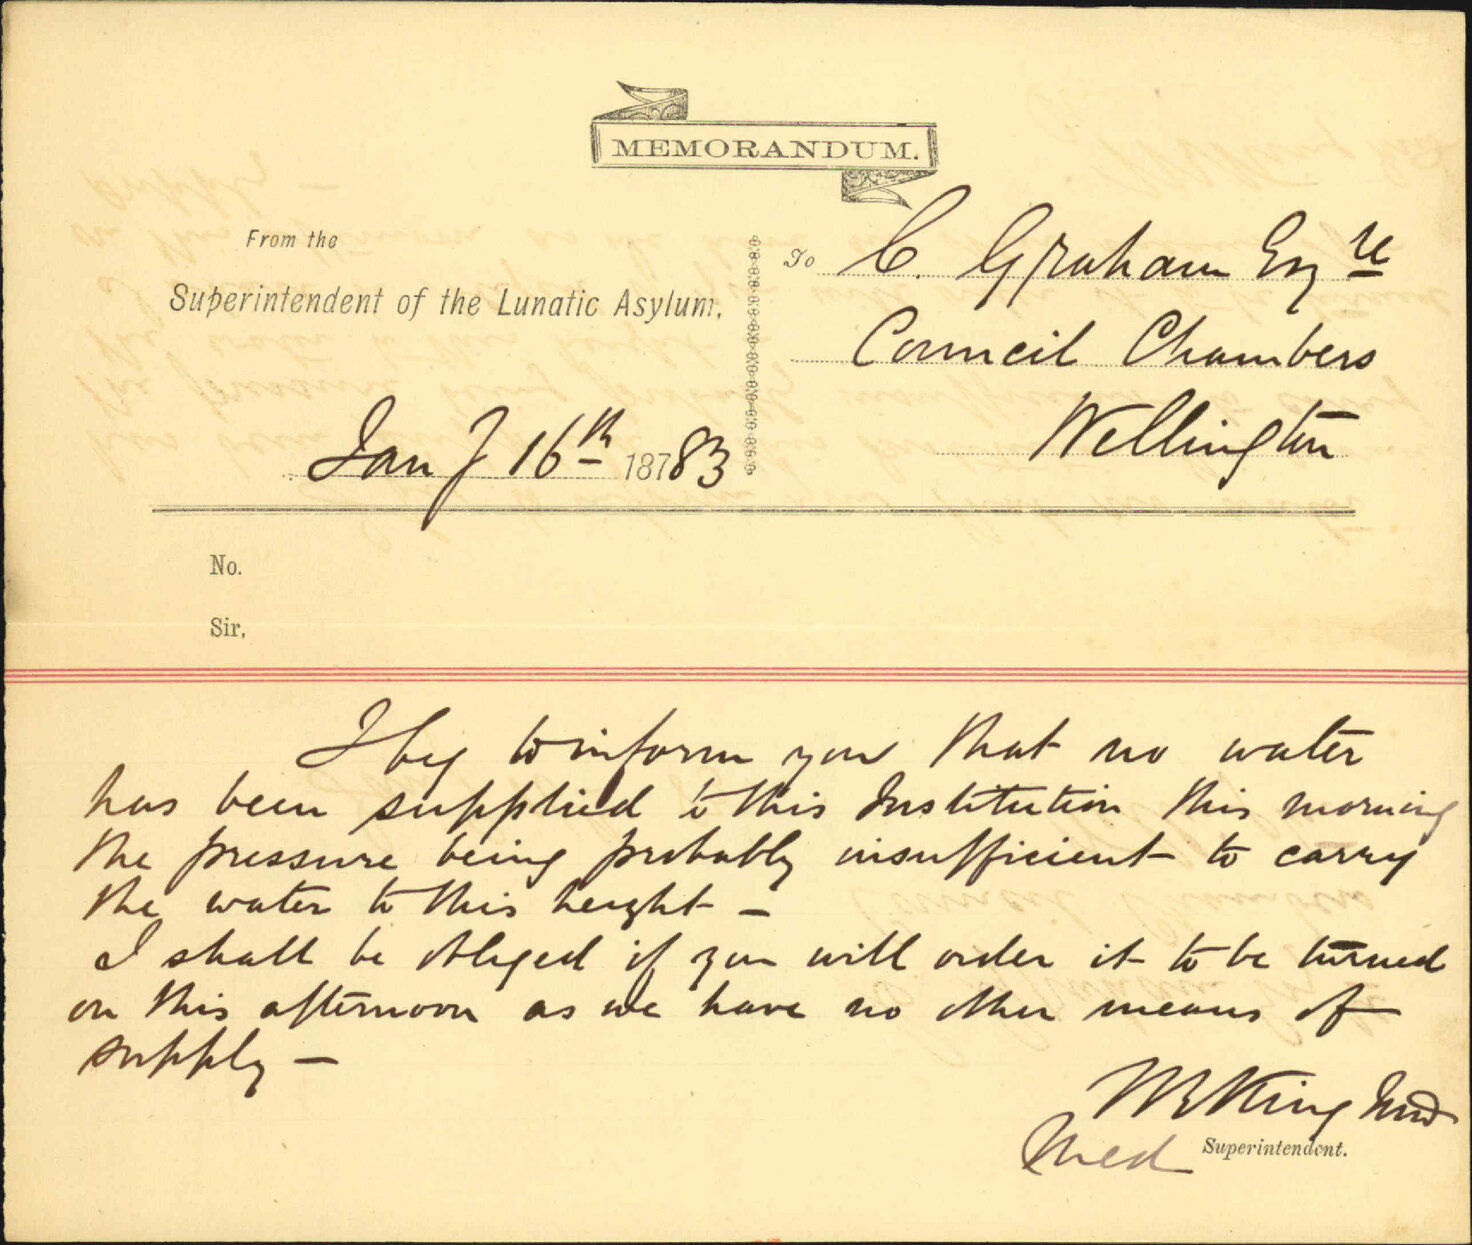 MEMORANDUM.
From the
Superintendent of the Lunatic Asylum,
Jany 16th 18783
To C. Graham Esqre
Council Chambers
Wellington
No.
Sir,
I beg to inform you that no water
has been supplied to this Institution this morning
the pressure being probably insufficient to carry
the water to this height —
I shall be obliged if you will order it to be turned
on this afternoon as we have no other means of
supply —
King
Med Superintendent.